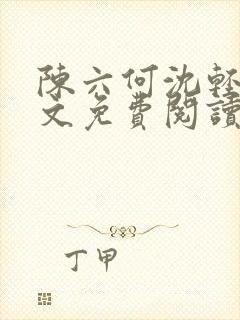 陳六何沈輕
文免費閱讀
丁甲